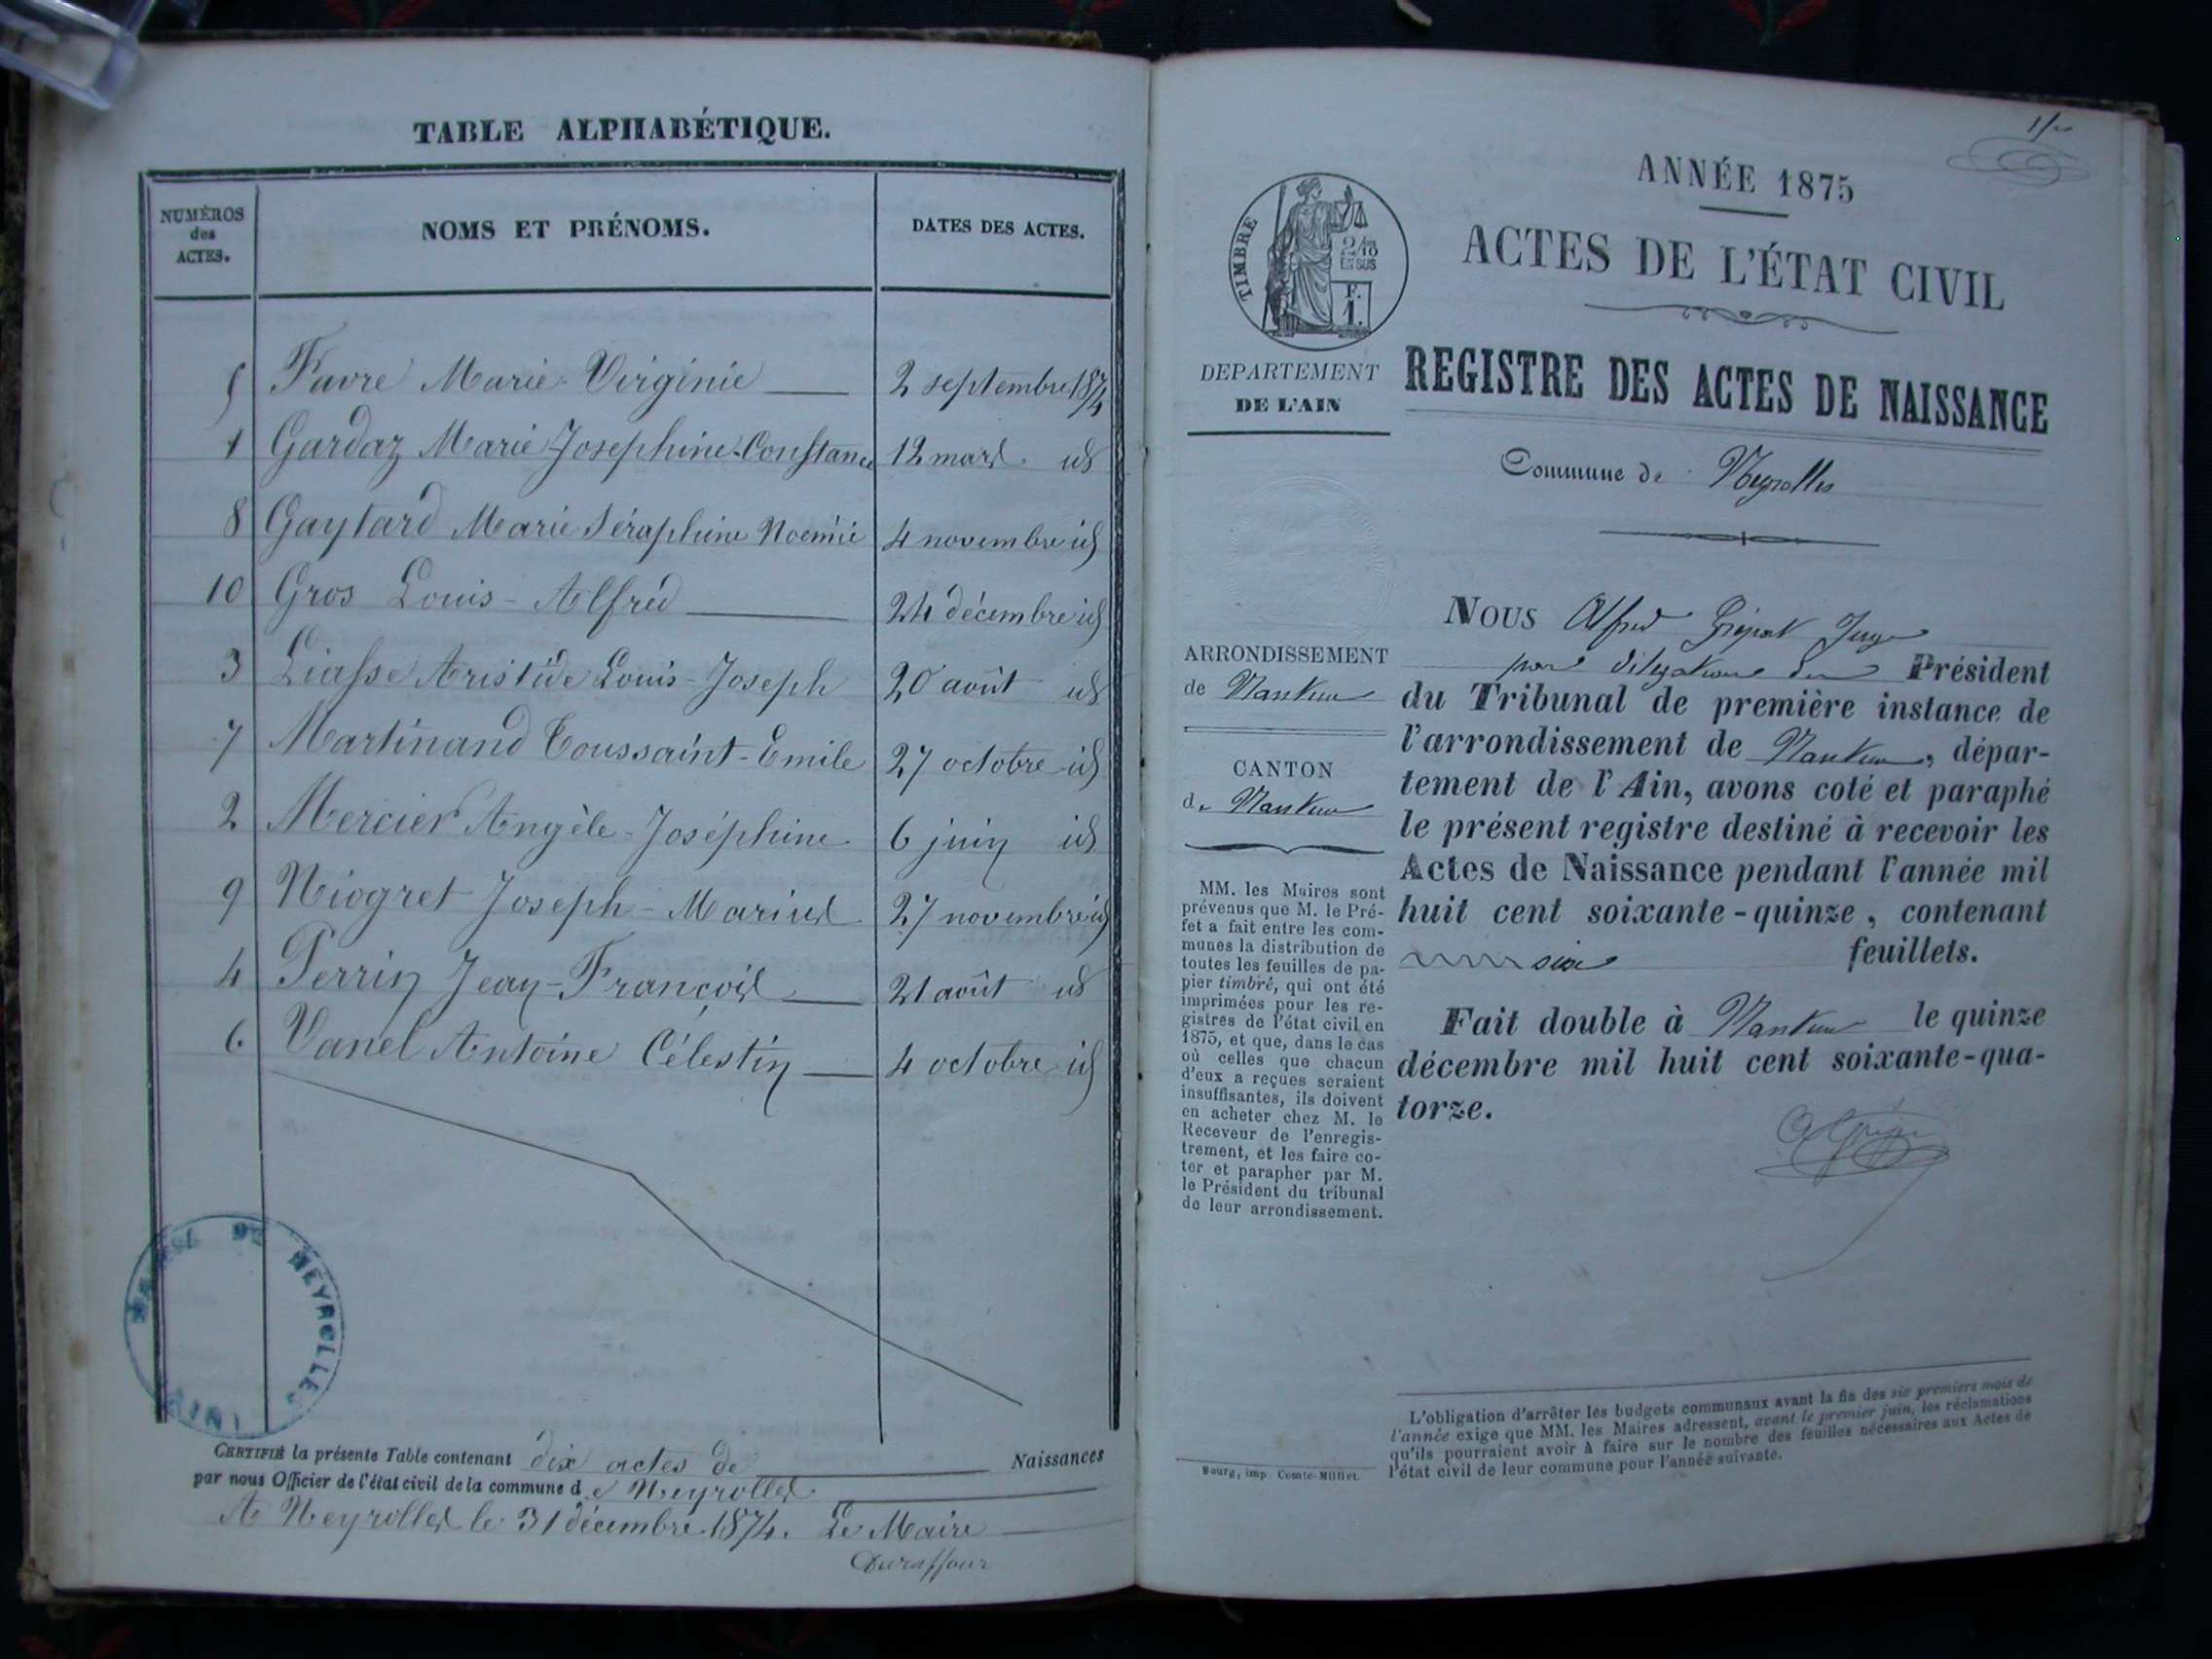 TABLE ALPHABÉTIQUE.
NUMÉROS des ACTES. NOMS ET PRÉNOMS. DATES DES ACTES.
5 Favre Marie-Virginie 2 septembre 1874
1 Gardaz Marie Josephine-Constance 12 mars id
8 Gaytard Marie Séraphine Noémie 4 novembre id
10 Gros Louis-Alfred 24 décembre id
3 Liasse Aristide Louis-Joseph 20 août id
7 Martinand Toussaint-Emile 27 octobre id
2 Mercier Angèle-Joséphine 6 juin id
9 Niogret Joseph-Marius 27 novembre id
4 Perrin Jean-François 21 août id
6 Vanel Antoine Célestin 4 octobre id
MAIRIE DE NEYROLLES
AIN
CERTIFIÉ la présente Table contenant dix actes de Naissances
par nous Officier de l'état civil de la commune de Neyrolles
A Neyrolles le 31 décembre 1874. Le Maire
Duraffour
ANNÉE 1875
ACTES DE L'ÉTAT CIVIL
TIMBRE
2/10
EN SUS
F.
1.
DEPARTEMENT
DE L'AIN
REGISTRE DES ACTES DE NAISSANCE
Commune de Neyrolles
ARRONDISSEMENT
de Nantua
CANTON
de Nantua
MM. les Maires sont
prévenus que M. le Pré-
fet a fait entre les com-
munes la distribution de
toutes les feuilles de pa-
pier timbré, qui ont été
imprimées pour les re-
gistres de l'état civil en
1875, et que, dans le cas
où celles que chacun
d'eux a reçues seraient
insuffisantes, ils doivent
en acheter chez M. le
Receveur de l'enregis-
trement, et les faire co-
ter et parapher par M.
le Président du tribunal
de leur arrondissement.
NOUS Alfred Juge
par délégation du Président
du Tribunal de première instance de
l'arrondissement de Nantua, dépar-
tement de l'Ain, avons coté et paraphé
le présent registre destiné à recevoir les
Actes de Naissance pendant l'année mil
huit cent soixante-quinze, contenant
six feuillets.
Fait double à Nantua le quinze
décembre mil huit cent soixante-qua-
torze.
L'obligation d'arrêter les budgets communaux avant la fin des six premiers mois de
l'année exige que MM. les Maires adressent, avant le premier juin, les réclamations
qu'ils pourraient avoir à faire sur le nombre des feuilles nécessaires aux Actes de
l'état civil de leur commune pour l'année suivante.
Bourg, imp. Comte-Milliet.